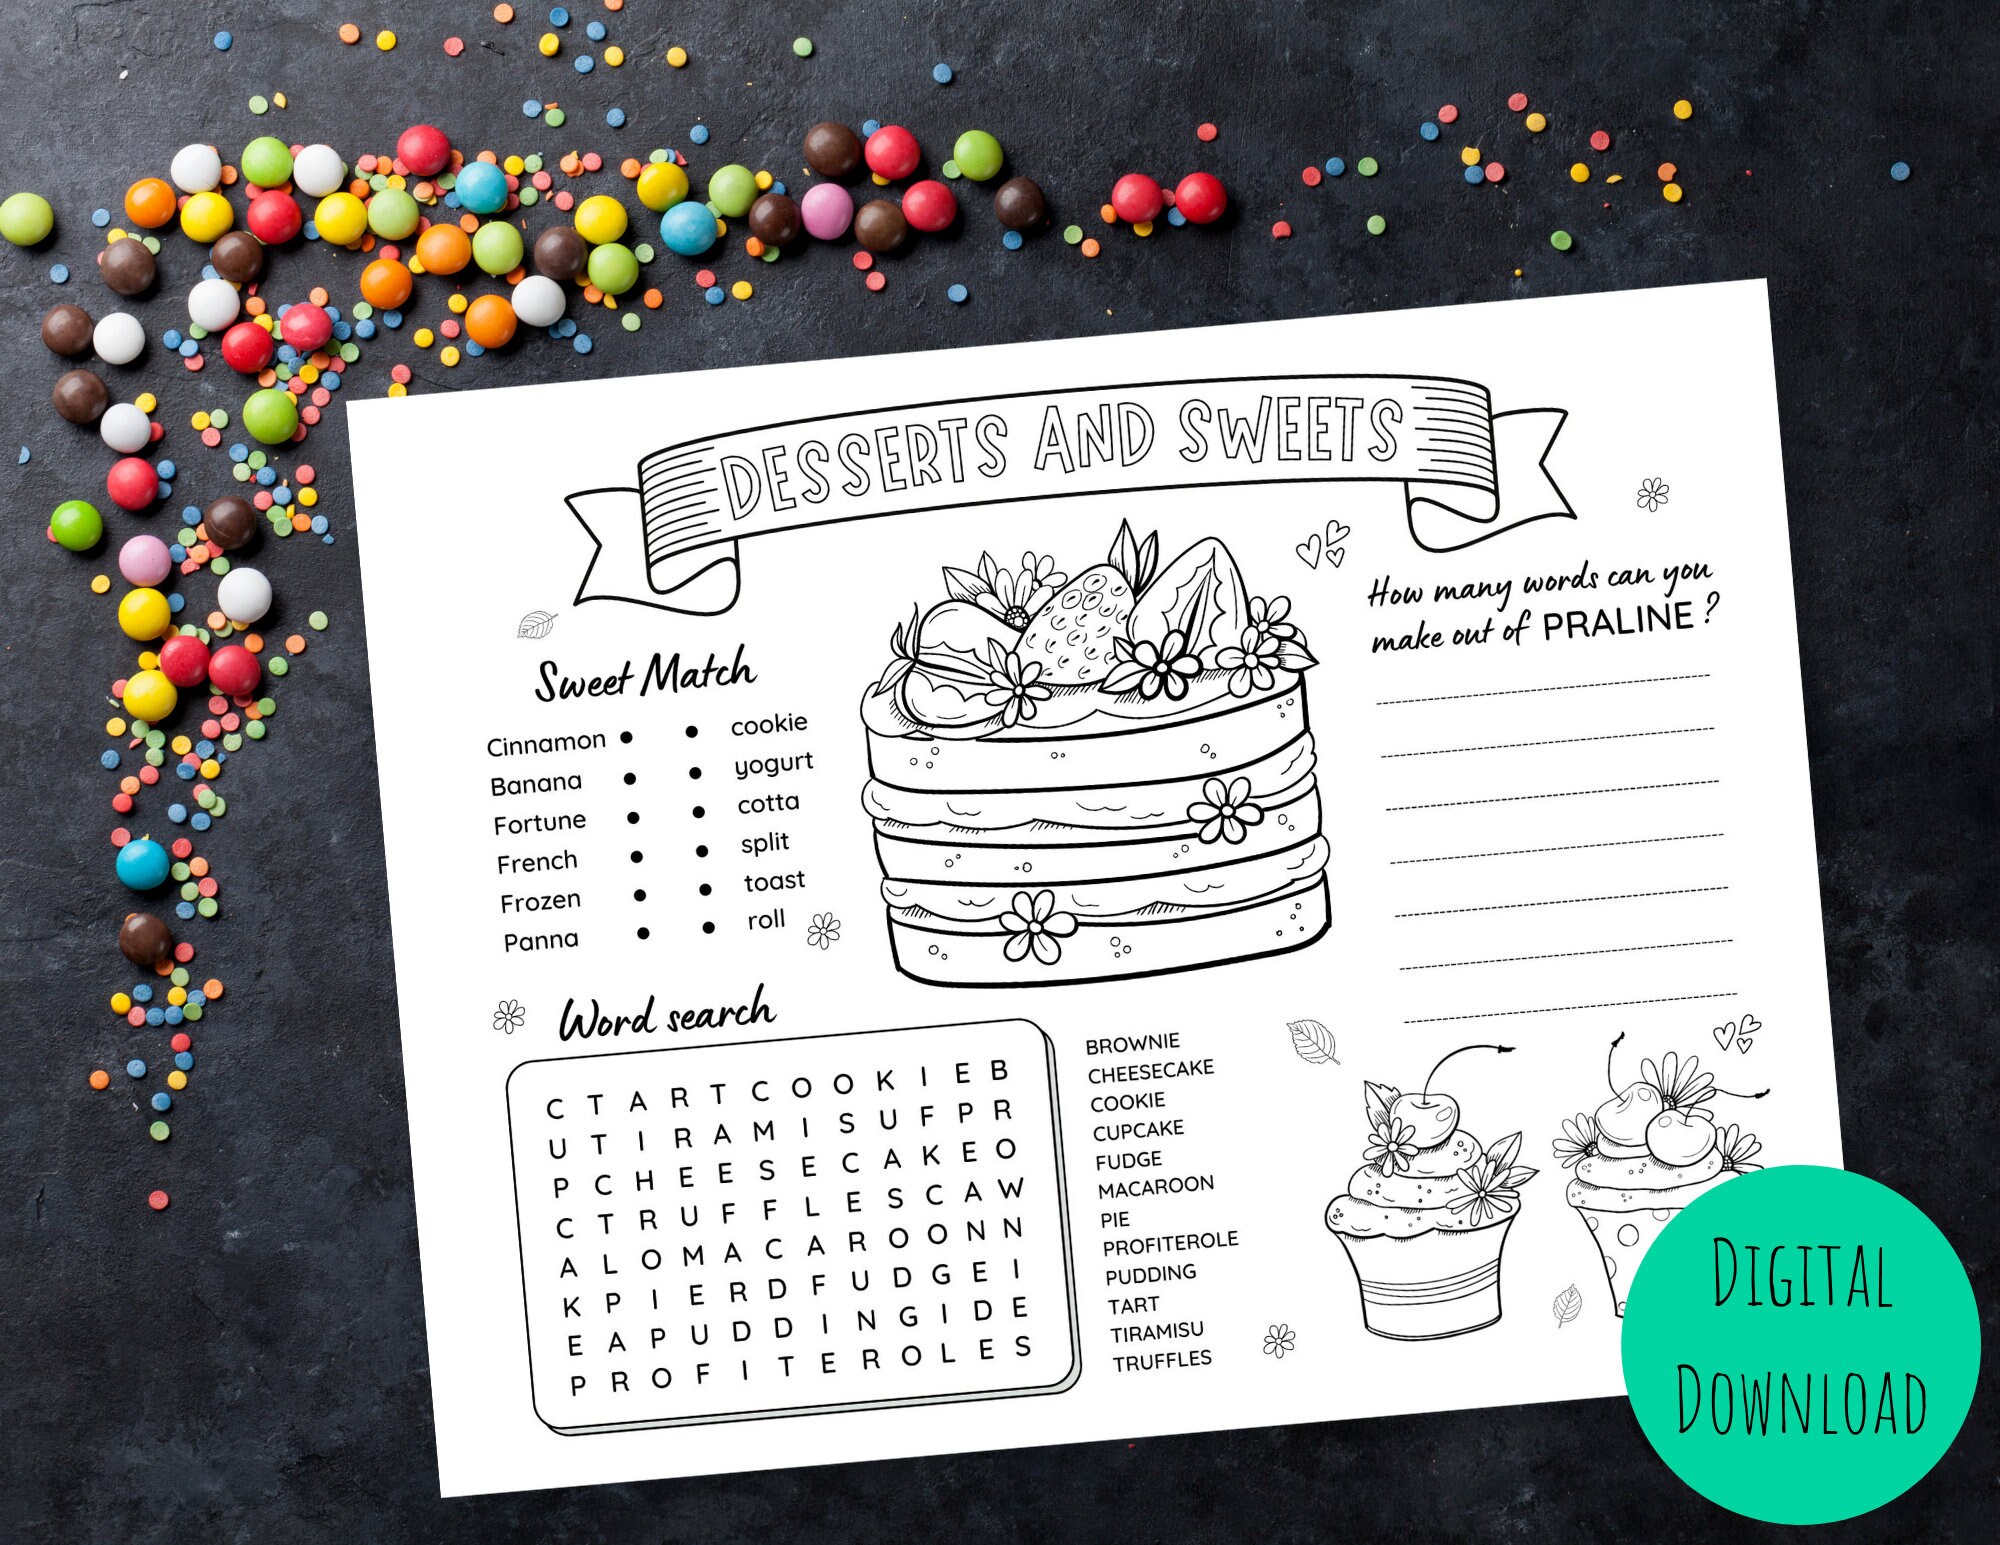 DESSERTS AND SWEETS
How many words can you
make out of PRALINE?
Sweet Match
Cinnamon • • cookie
Banana • • yogurt
Fortune • • cotta
French • • split
Frozen • • toast
Panna • • roll
Word search
C T A R T C O O K I E B
U T I R A M I S U F P R
P C H E E S E C A K E O
C T R U F F L E S C A W
A L O M A C A R O O N N
K P I E R D F U D G E I
E A P U D D I N G I D E
P R O F I T E R O L E S
BROWNIE
CHEESECAKE
COOKIE
CUPCAKE
FUDGE
MACAROON
PIE
PROFITEROLE
PUDDING
TART
TIRAMISU
TRUFFLES
DIGITAL
DOWNLOAD